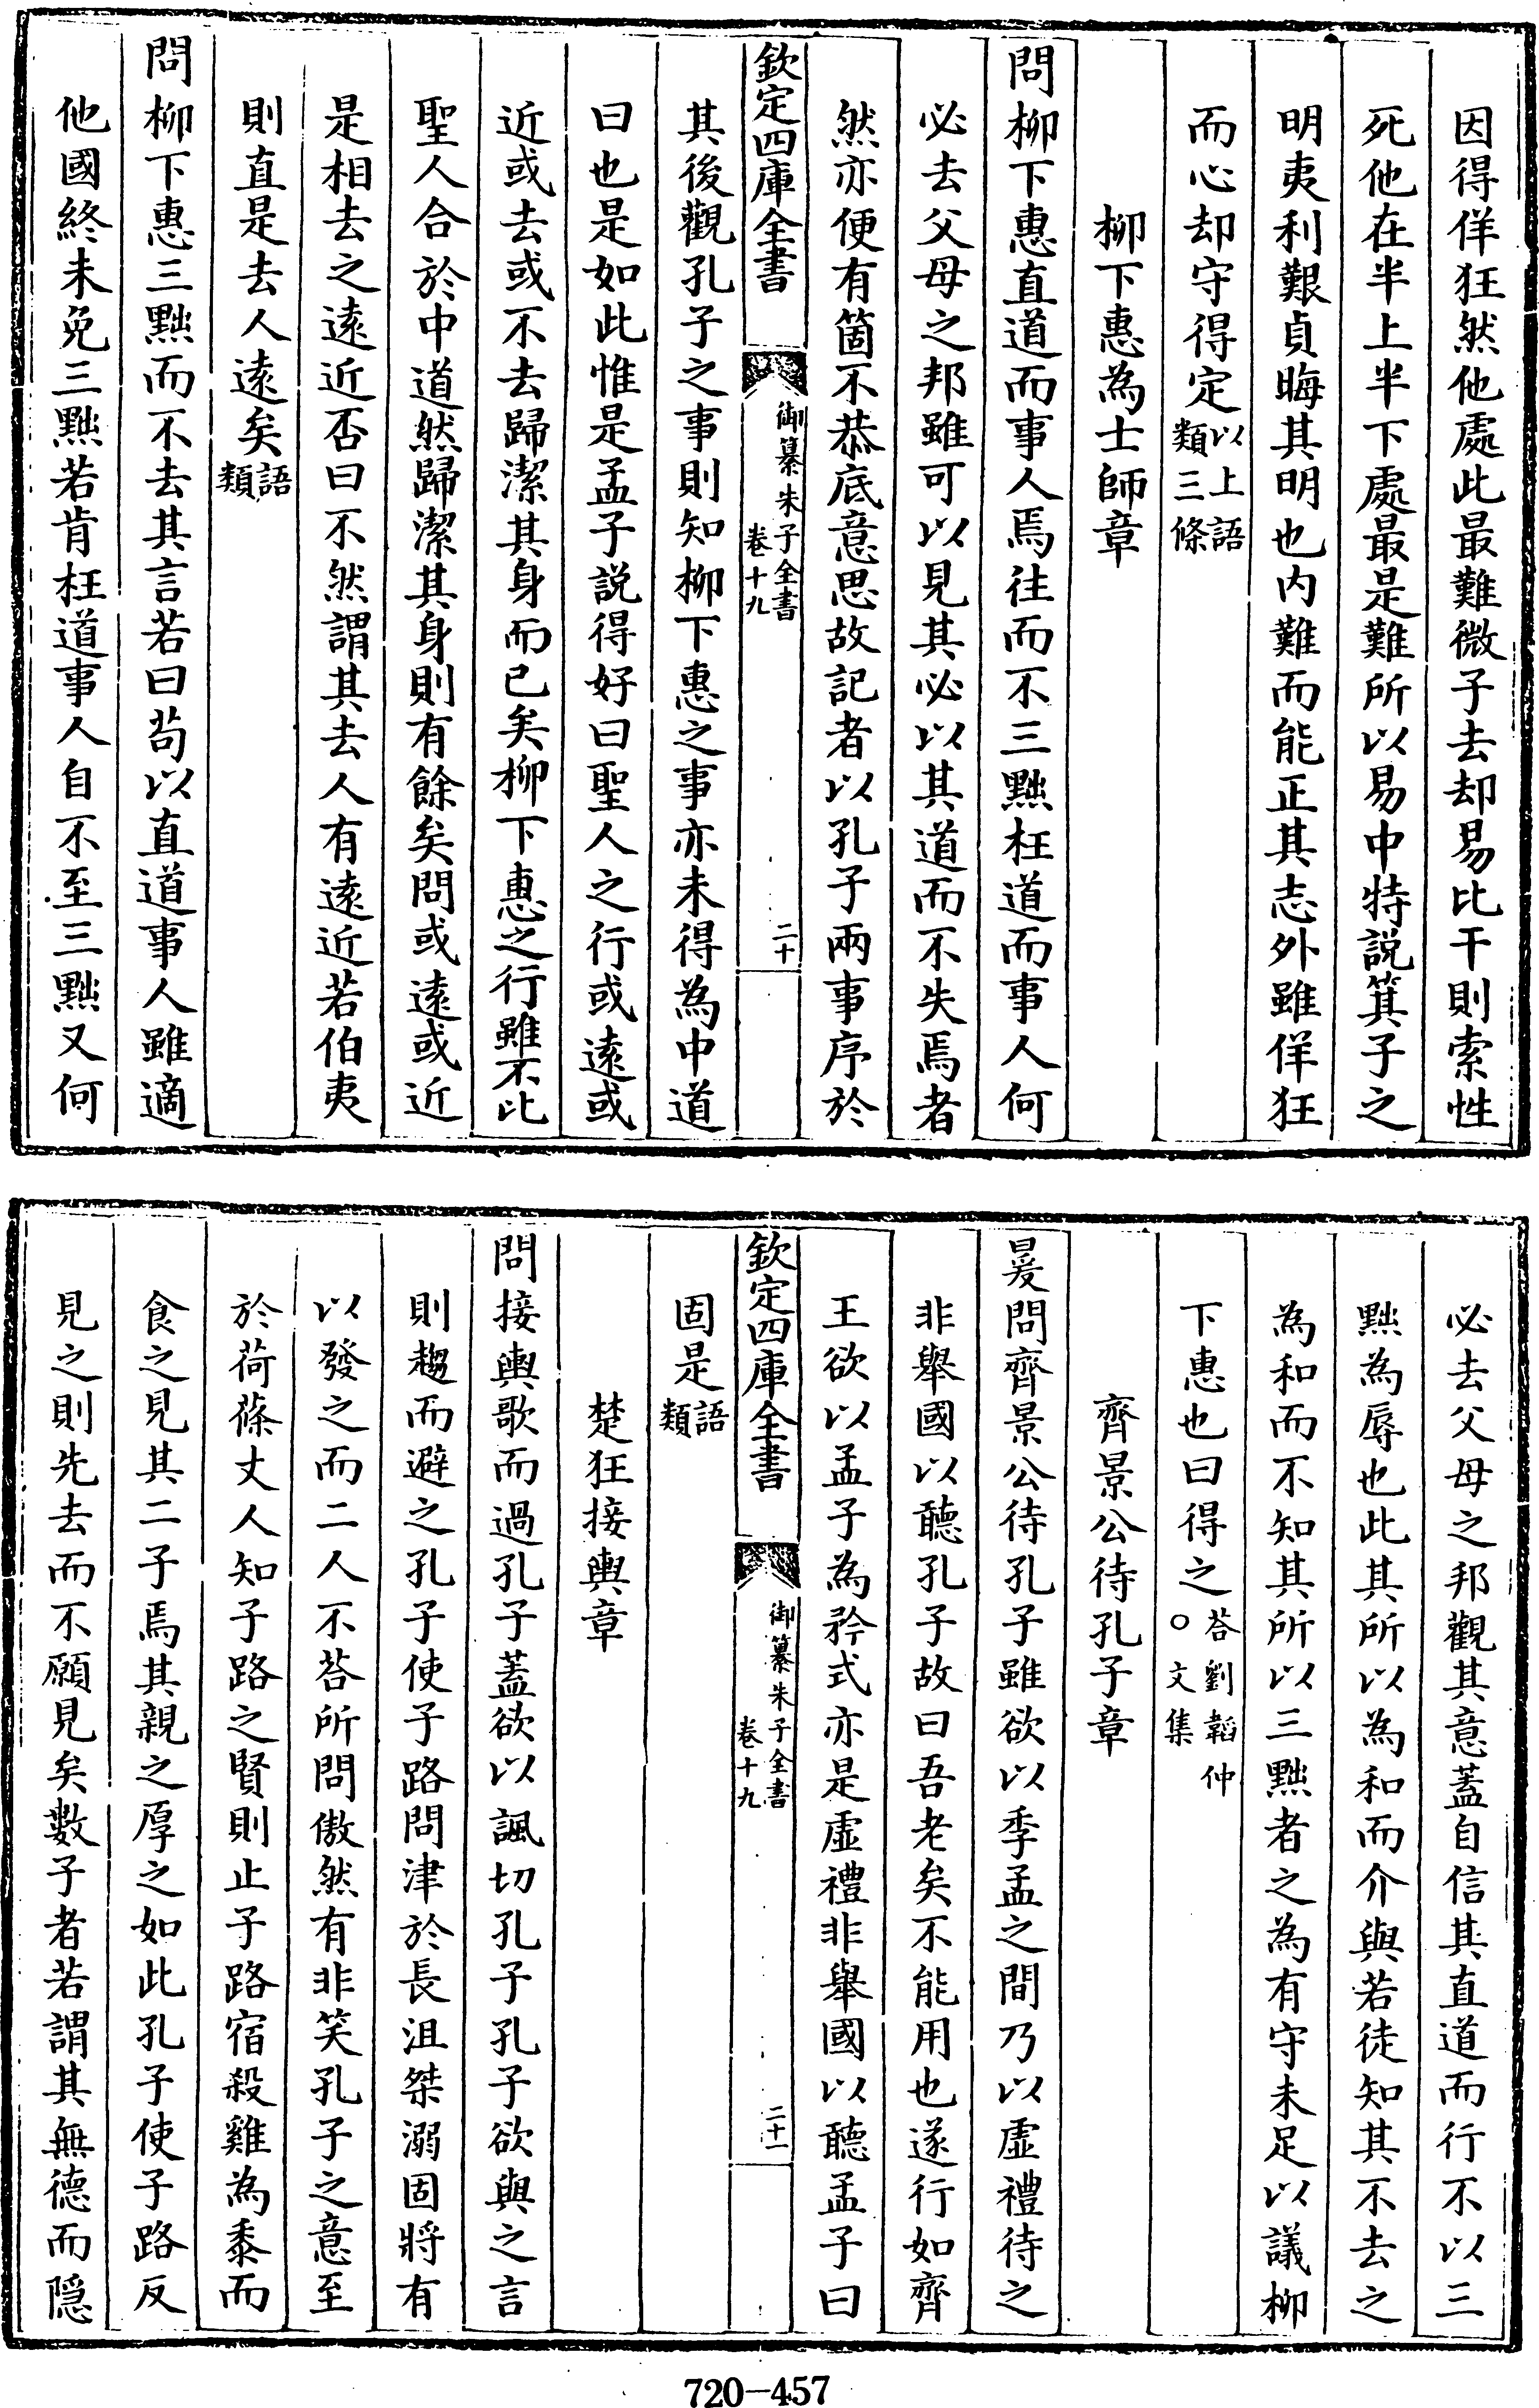 因得佯狂然他處此最難微子去却易比干則索性
死他在半上半下處最是難所以易中特説箕子之
明夷利艱貞晦其明也内難而能正其志外雖佯狂
而心却守得定以上語類三條
柳下惠為士師章
問柳下惠直道而事人焉往而不三黜枉道而事人何
必去父母之邦雖可以見其必以其道而不失焉者
然亦便有箇不恭底意思故記者以孔子兩事序於
欽定四庫全書 御纂朱子全書 卷十九 二十
其後觀孔子之事則知柳下惠之事亦未得為中道
曰也是如此惟是孟子説得好曰聖人之行或逺或
近或去或不去歸潔其身而已矣柳下惠之行雖不比
聖人合於中道然歸潔其身則有餘矣問或逺或近
是相去之逺近否曰不然謂其去人有逺近若伯夷
則直是去人逺矣語類
問柳下惠三黜而不去其言若曰苟以直道事人雖適
他國終未免三黜若肯枉道事人自不至三黜又何
必去父母之邦觀其意蓋自信其直道而行不以三
黜為辱也此其所以為和而介與若徒知其不去之
為和而不知其所以三黜者之為有守未足以議柳
下惠也曰得之荅劉韜仲○文集
齊景公待孔子章
㬊問齊景公待孔子雖欲以季孟之間乃以虛禮待之
非舉國以聽孔子故曰吾老矣不能用也遂行如齊
王欲以孟子為矜式亦是虛禮非舉國以聽孟子曰
欽定四庫全書 御纂朱子全書 卷十九 二十一
固是語類
楚狂接輿章
問接輿歌而過孔子蓋欲以諷切孔子孔子欲與之言
則趨而避之孔子使子路問津於長沮桀溺固將有
以發之而二人不荅所問傲然有非笑孔子之意至
於荷蓧丈人知子路之賢則止子路宿殺雞為黍而
食之見其二子焉其親之厚之如此孔子使子路反
見之則先去而不願見矣數子者若謂其無德而隠
720-457